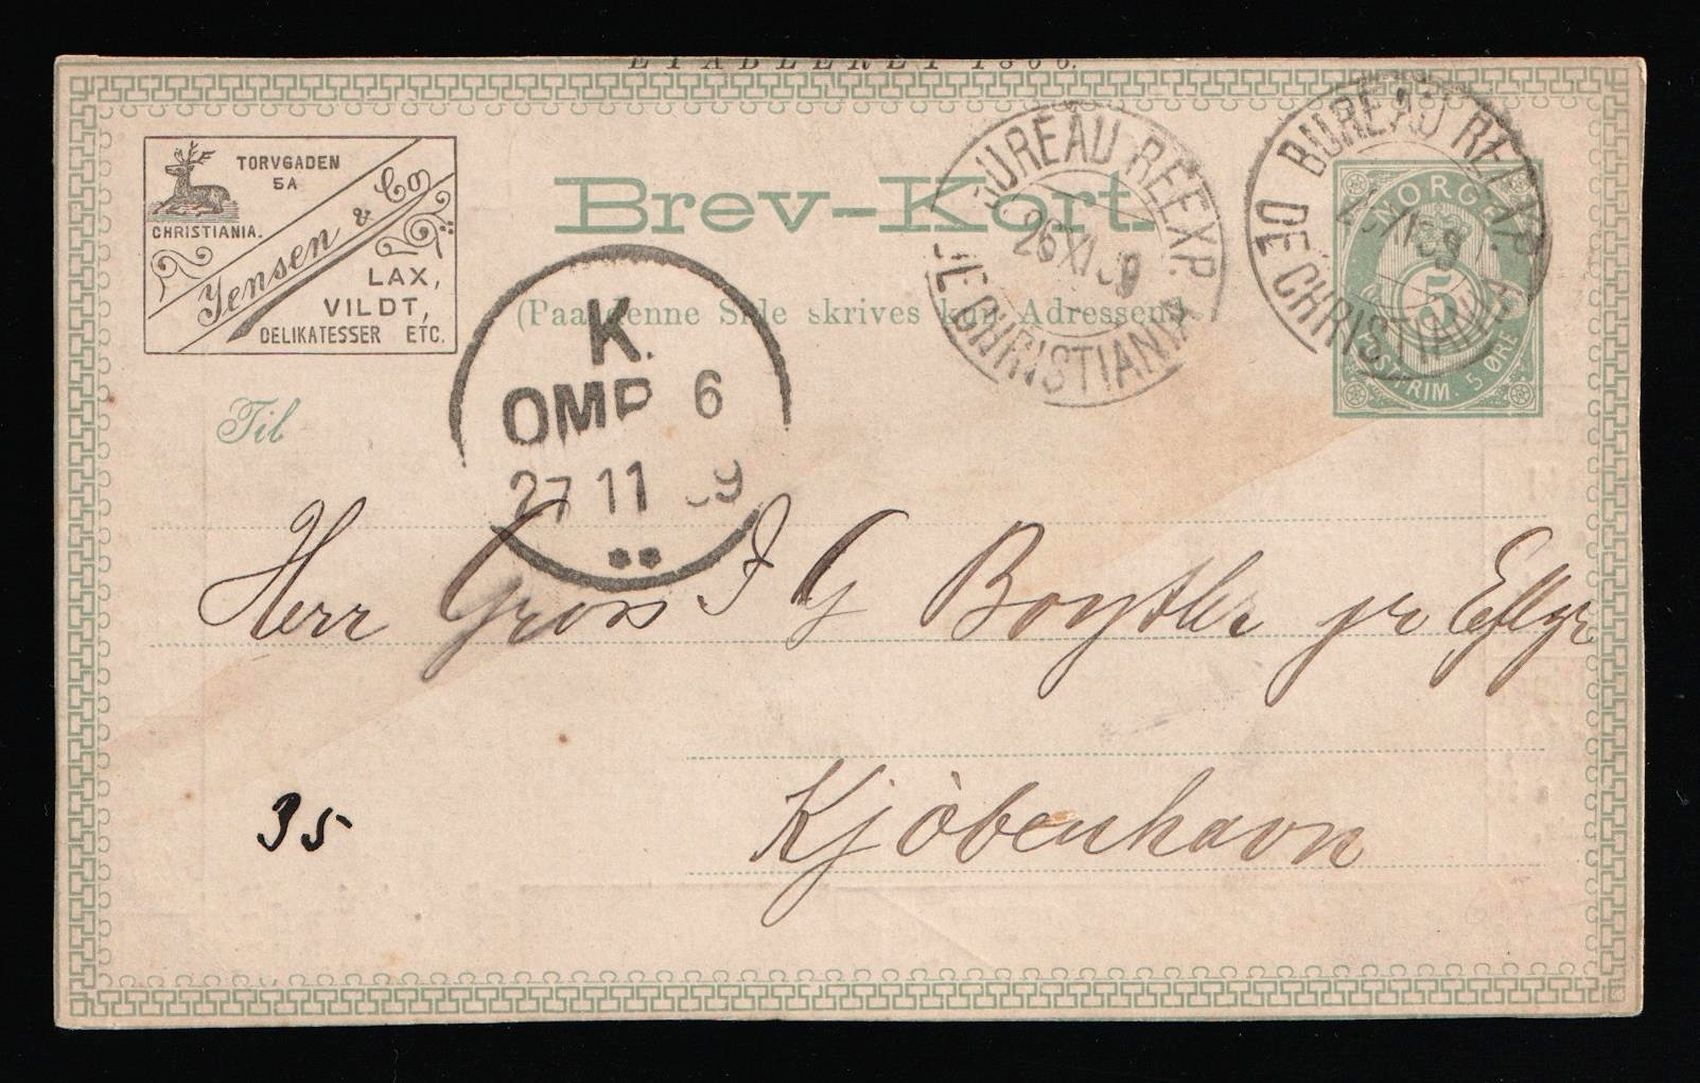 ETABLERET 1866.
TORVGADEN
5A
CHRISTIANIA.
Jensen & Co
LAX,
VILDT,
DELIKATESSER ETC.
Brev-Kort.
(Paa denne Side skrives kun Adressen)
BUREAU REEXP.
26 XI 89
DE CHRISTIANIA
BUREAU REEXP.
DE CHRISTIANIA
NORGE
5
POSTFRIM. 5 ØRE
K.
OMB 6
27 11 89
Til
Herr Gross I G Boytler pr Eftgr
Kjöbenhavn
35